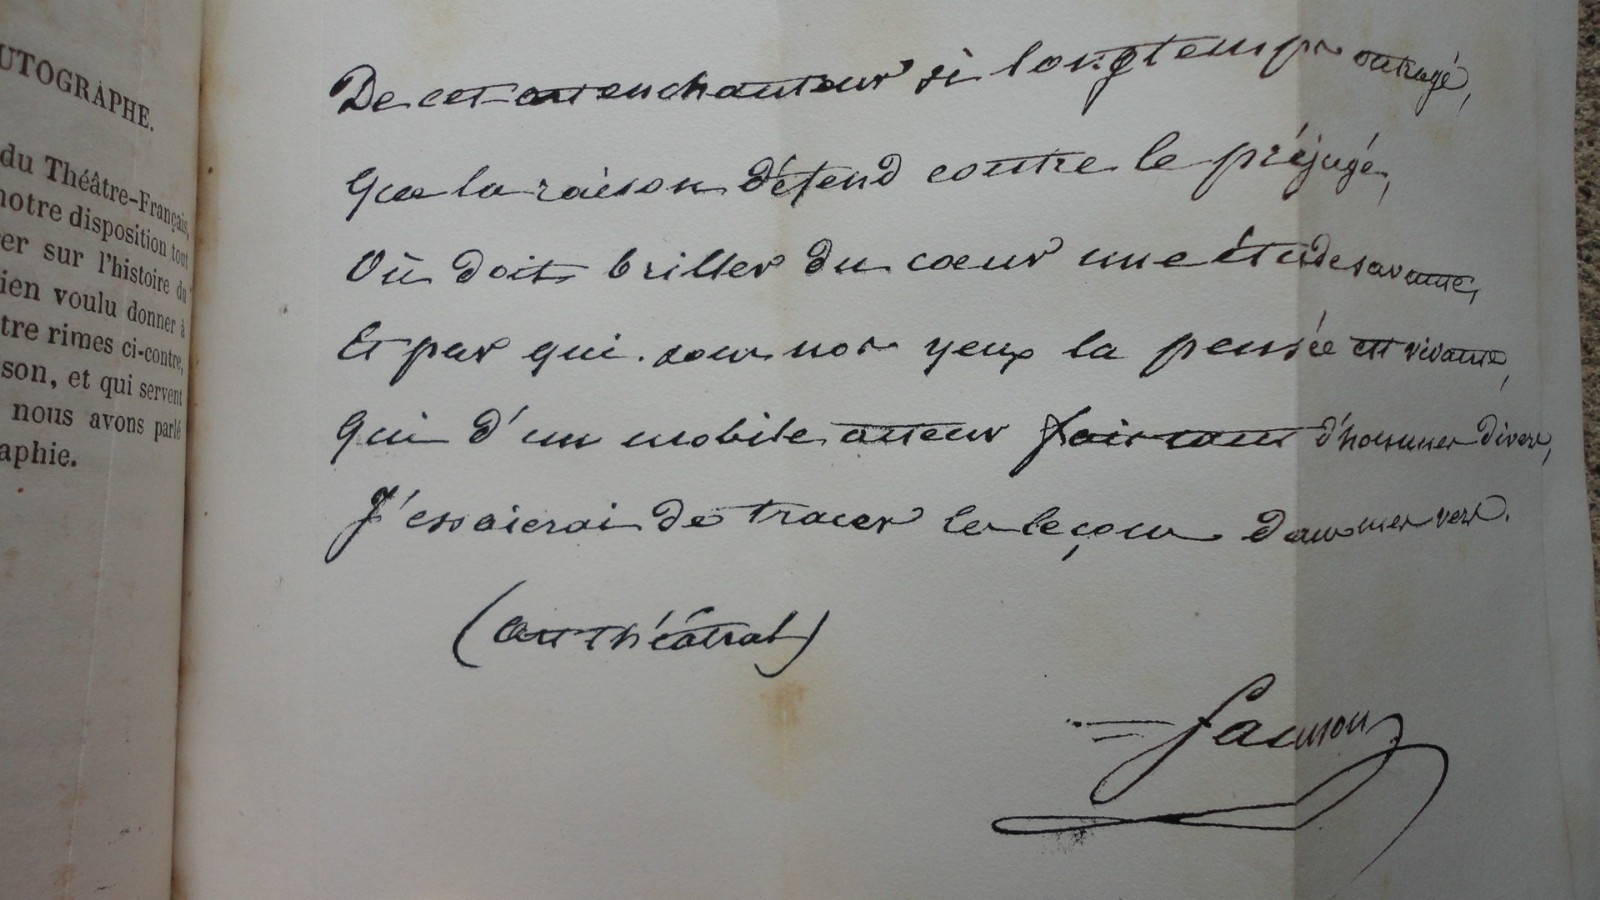 UTOGRAPHE.
du Théâtre-Français,
notre disposition tout
er sur l'histoire du
ien voulu donner à
tre rimes ci-contre,
son, et qui servent
nous avons parlé
aphie.
De cet art enchanteur si longtemps outragé,
Que la raison défend contre le préjugé,
Où doit briller du cœur une étude savante,
Et par qui sous nos yeux la pensée est vivante,
Qui d'un mobile acteur fait tant d'hommes divers,
J'essaierai de tracer les leçons dans mes vers.
(art théâtral)
Samson